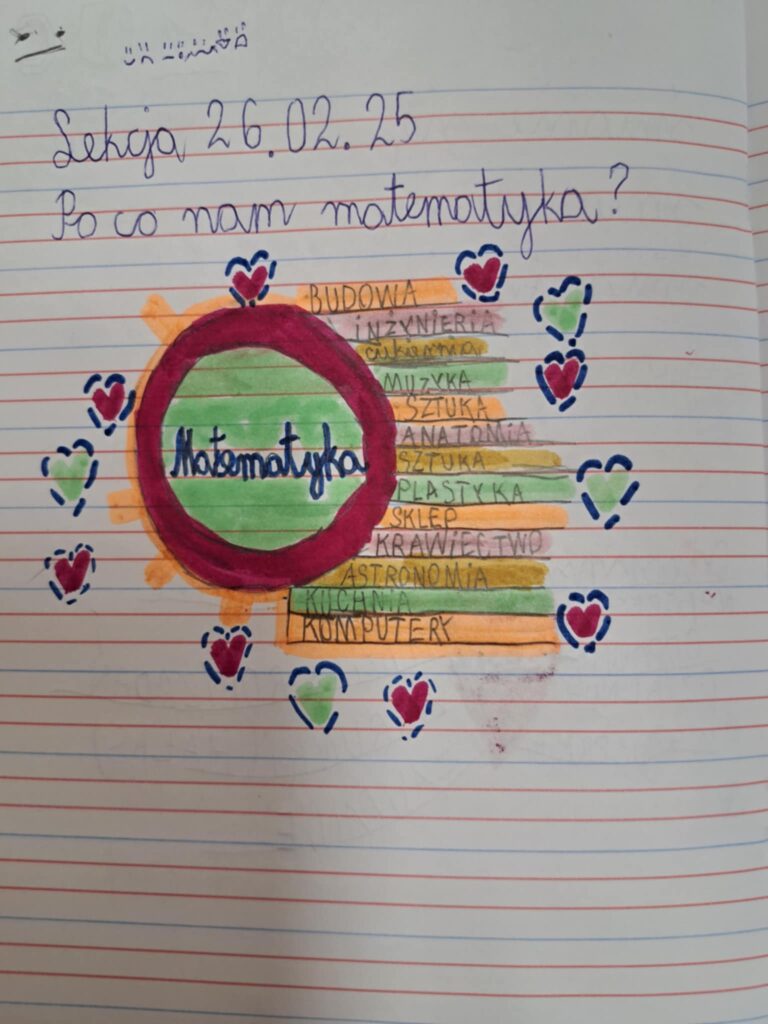 Lekcja 26.02.25
Po co nam matematyka?
BUDOWA
iNŻYNiERiA
cukiernia
MUZYKA
SZTUKA
Matematyka
ANATOMiA
SZTUKA
PLASTYKA
SKLEP
KRAWiECTWO
ASTRONOMiA
KUCHNiA
KOMPUTERY